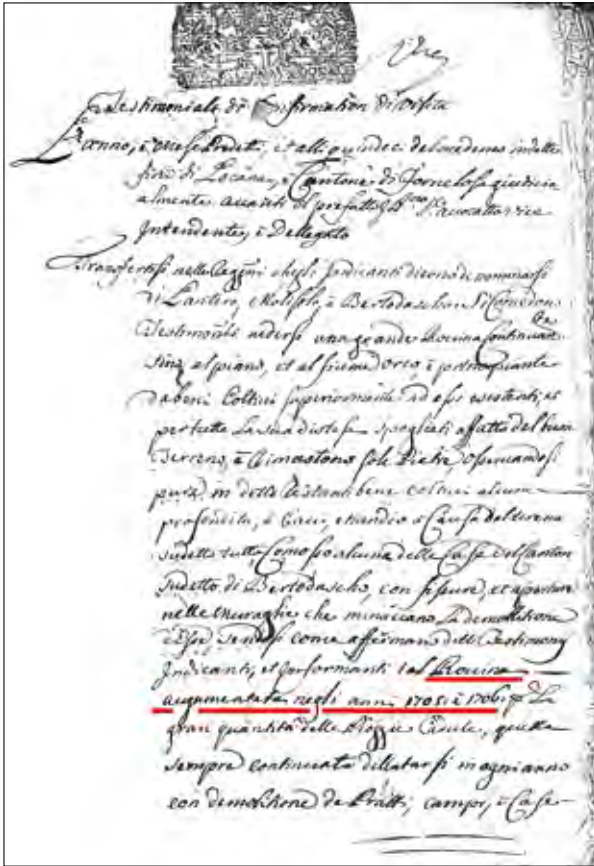 Testimoniali di Visita
L'anno, e mese predetti, et alli quindeci del sudetto in dette
fini di Locana, e Cantone di Fornelo giudicia
almente avanti il prefatto Sig.r Avocatto vice
Intendente, e Dellegato
Transfertisi nelle Reggini che gli Indicanti dicono nominarsi
di Lantero, e Bertodasco
Testimoniali vedersi una grande Rovina Continuante
sino al piano, et al fiume d'Orco, e principiante
da beni Coltivi superiormente ad essi esistenti, et
per tutta la sua distesa spogliati affatto del buon
Terreno, e Rimastono sole Pietre, Osservandosi
pure in detti Restanti bene coltivi alcune
profondita, e Cavi, a Causa del terreno
sudetto tutto Comosso alcuna delle Case del Canton
sudetto di Bertodascho, con fissure, et aperture
nelle muraglie che minacciano La demolitione
come affermano detti Testimonij
Indicanti, et Informanti tal Rovina
augumentata negli anni 1705: e 1706: p La
gran quantita delle Piogie Cadute, quale
sempre continuata dillatarsi in ogni anno
con demolitione de Pratti, campi, e Case